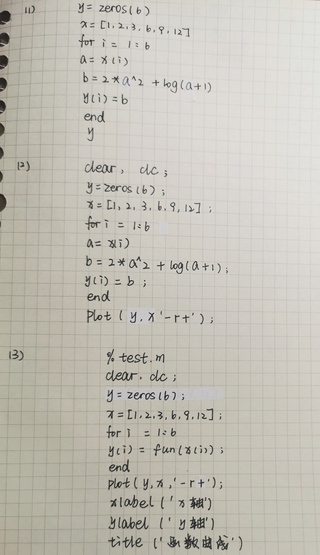 (1) y = zeros(6)
x = [1,2,3,6,9,12]
for i = 1:6
a = x(i)
b = 2*a^2 + log(a+1)
y(i) = b
end
y
(2) clear, clc;
y = zeros(6);
x = [1,2,3,6,9,12];
for i = 1:6
a = x(i)
b = 2*a^2 + log(a+1);
y(i) = b;
end
plot (y, x '-r+');
(3) % test.m
clear, clc;
y = zeros(6);
x = [1,2,3,6,9,12];
for i = 1:6
y(i) = fun(x(i));
end
plot(y, x, '-r+');
xlabel ('x轴')
ylabel ('y轴')
title ('函数曲线')